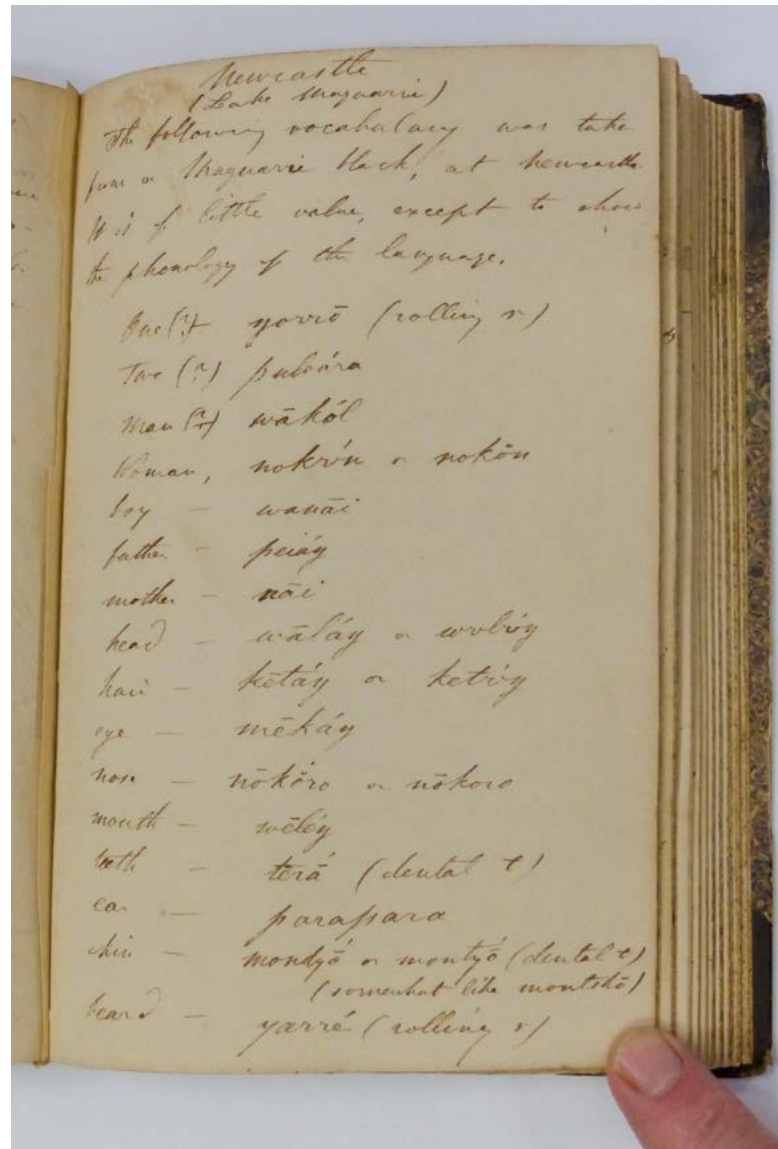 Newcastle
(Lake Maquarrie)
The following vocabulary was take
from a Maquarrie black, at Newcastle
It is of little value, except to show
the phonology of the language.
One (?) yorrō (rolling r)
Two (?) puloára
Man (?) wākól
Woman, nokrún or nokōn
boy – wanāi
father – peiáŋ
mother – nāi
head – wāláŋ or
hair – kētáŋ or
eye – mēkáŋ
nose – nōkōro or nōkoro
mouth – wēléŋ
teeth – terá (dental t)
ear – parapara
chin – mondyō or montyō (dental t)
(somewhat like montshō)
beard – yarré (rolling r)